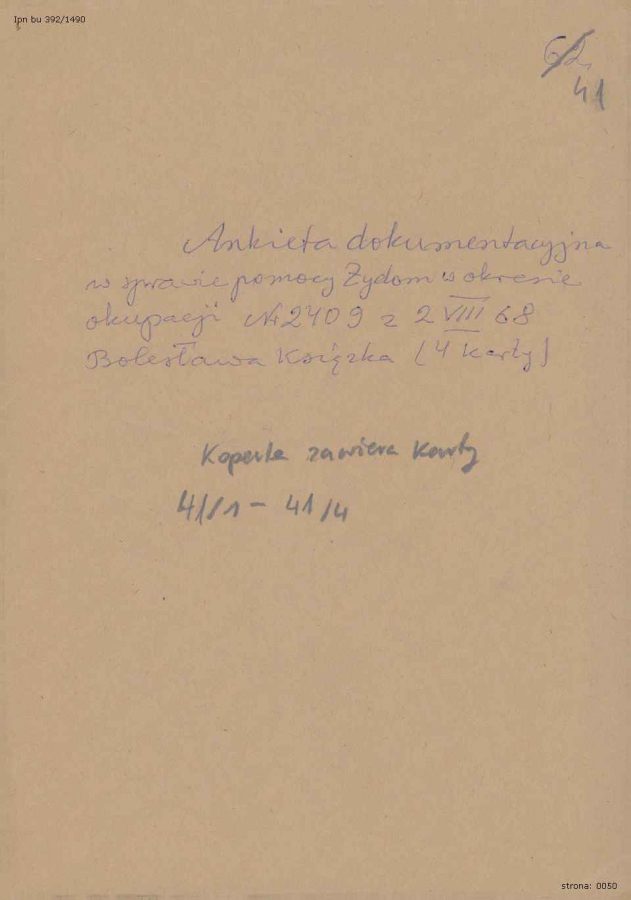 Ipn bu 392/1490
62
41
Ankieta dokumentacyjna
w sprawie pomocy Żydom w okresie
okupacji Nr 2409 z 2 VIII 68
Bolesława Książka (4 karty)
Koperta zawiera karty
41/1 - 41/4
strona: 0050